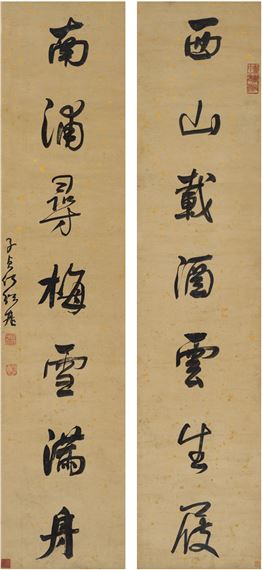 西山載酒雲生屐
南浦尋梅雪滿舟
子貞何紹基